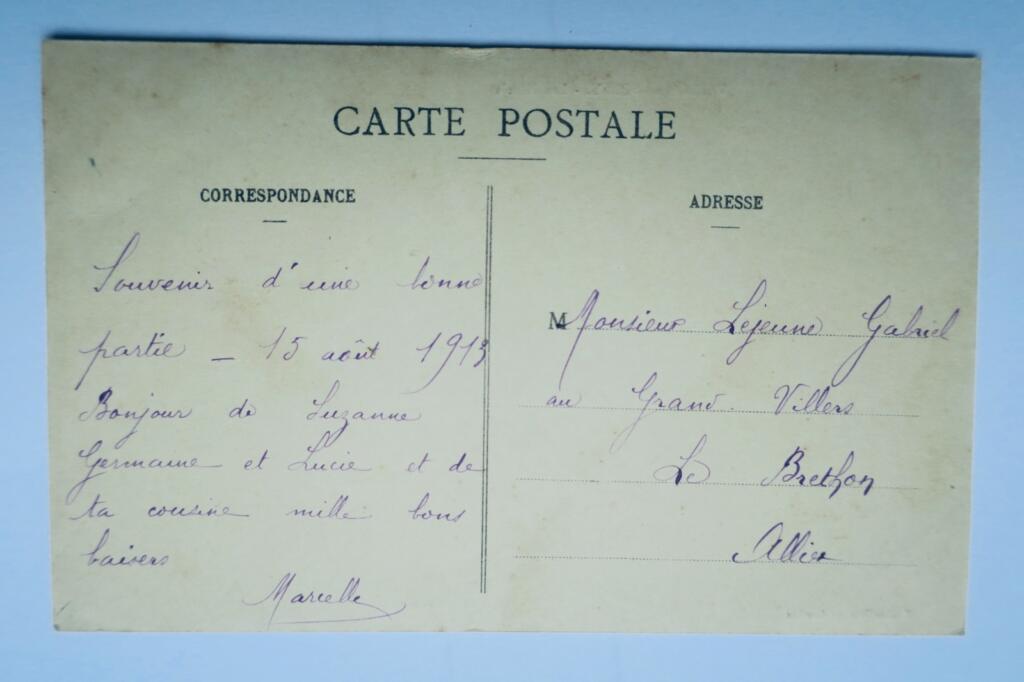 CARTE POSTALE
CORRESPONDANCE
Souvenir d'une bonne
partie - 15 août 1913
Bonjour de Suzanne
Germaine et Lucie et de
ta cousine mille bons
baisers
Marcelle
ADRESSE
M Monsieur Lejeune Gabriel
au Grand Villers
Le Brethon
Allier